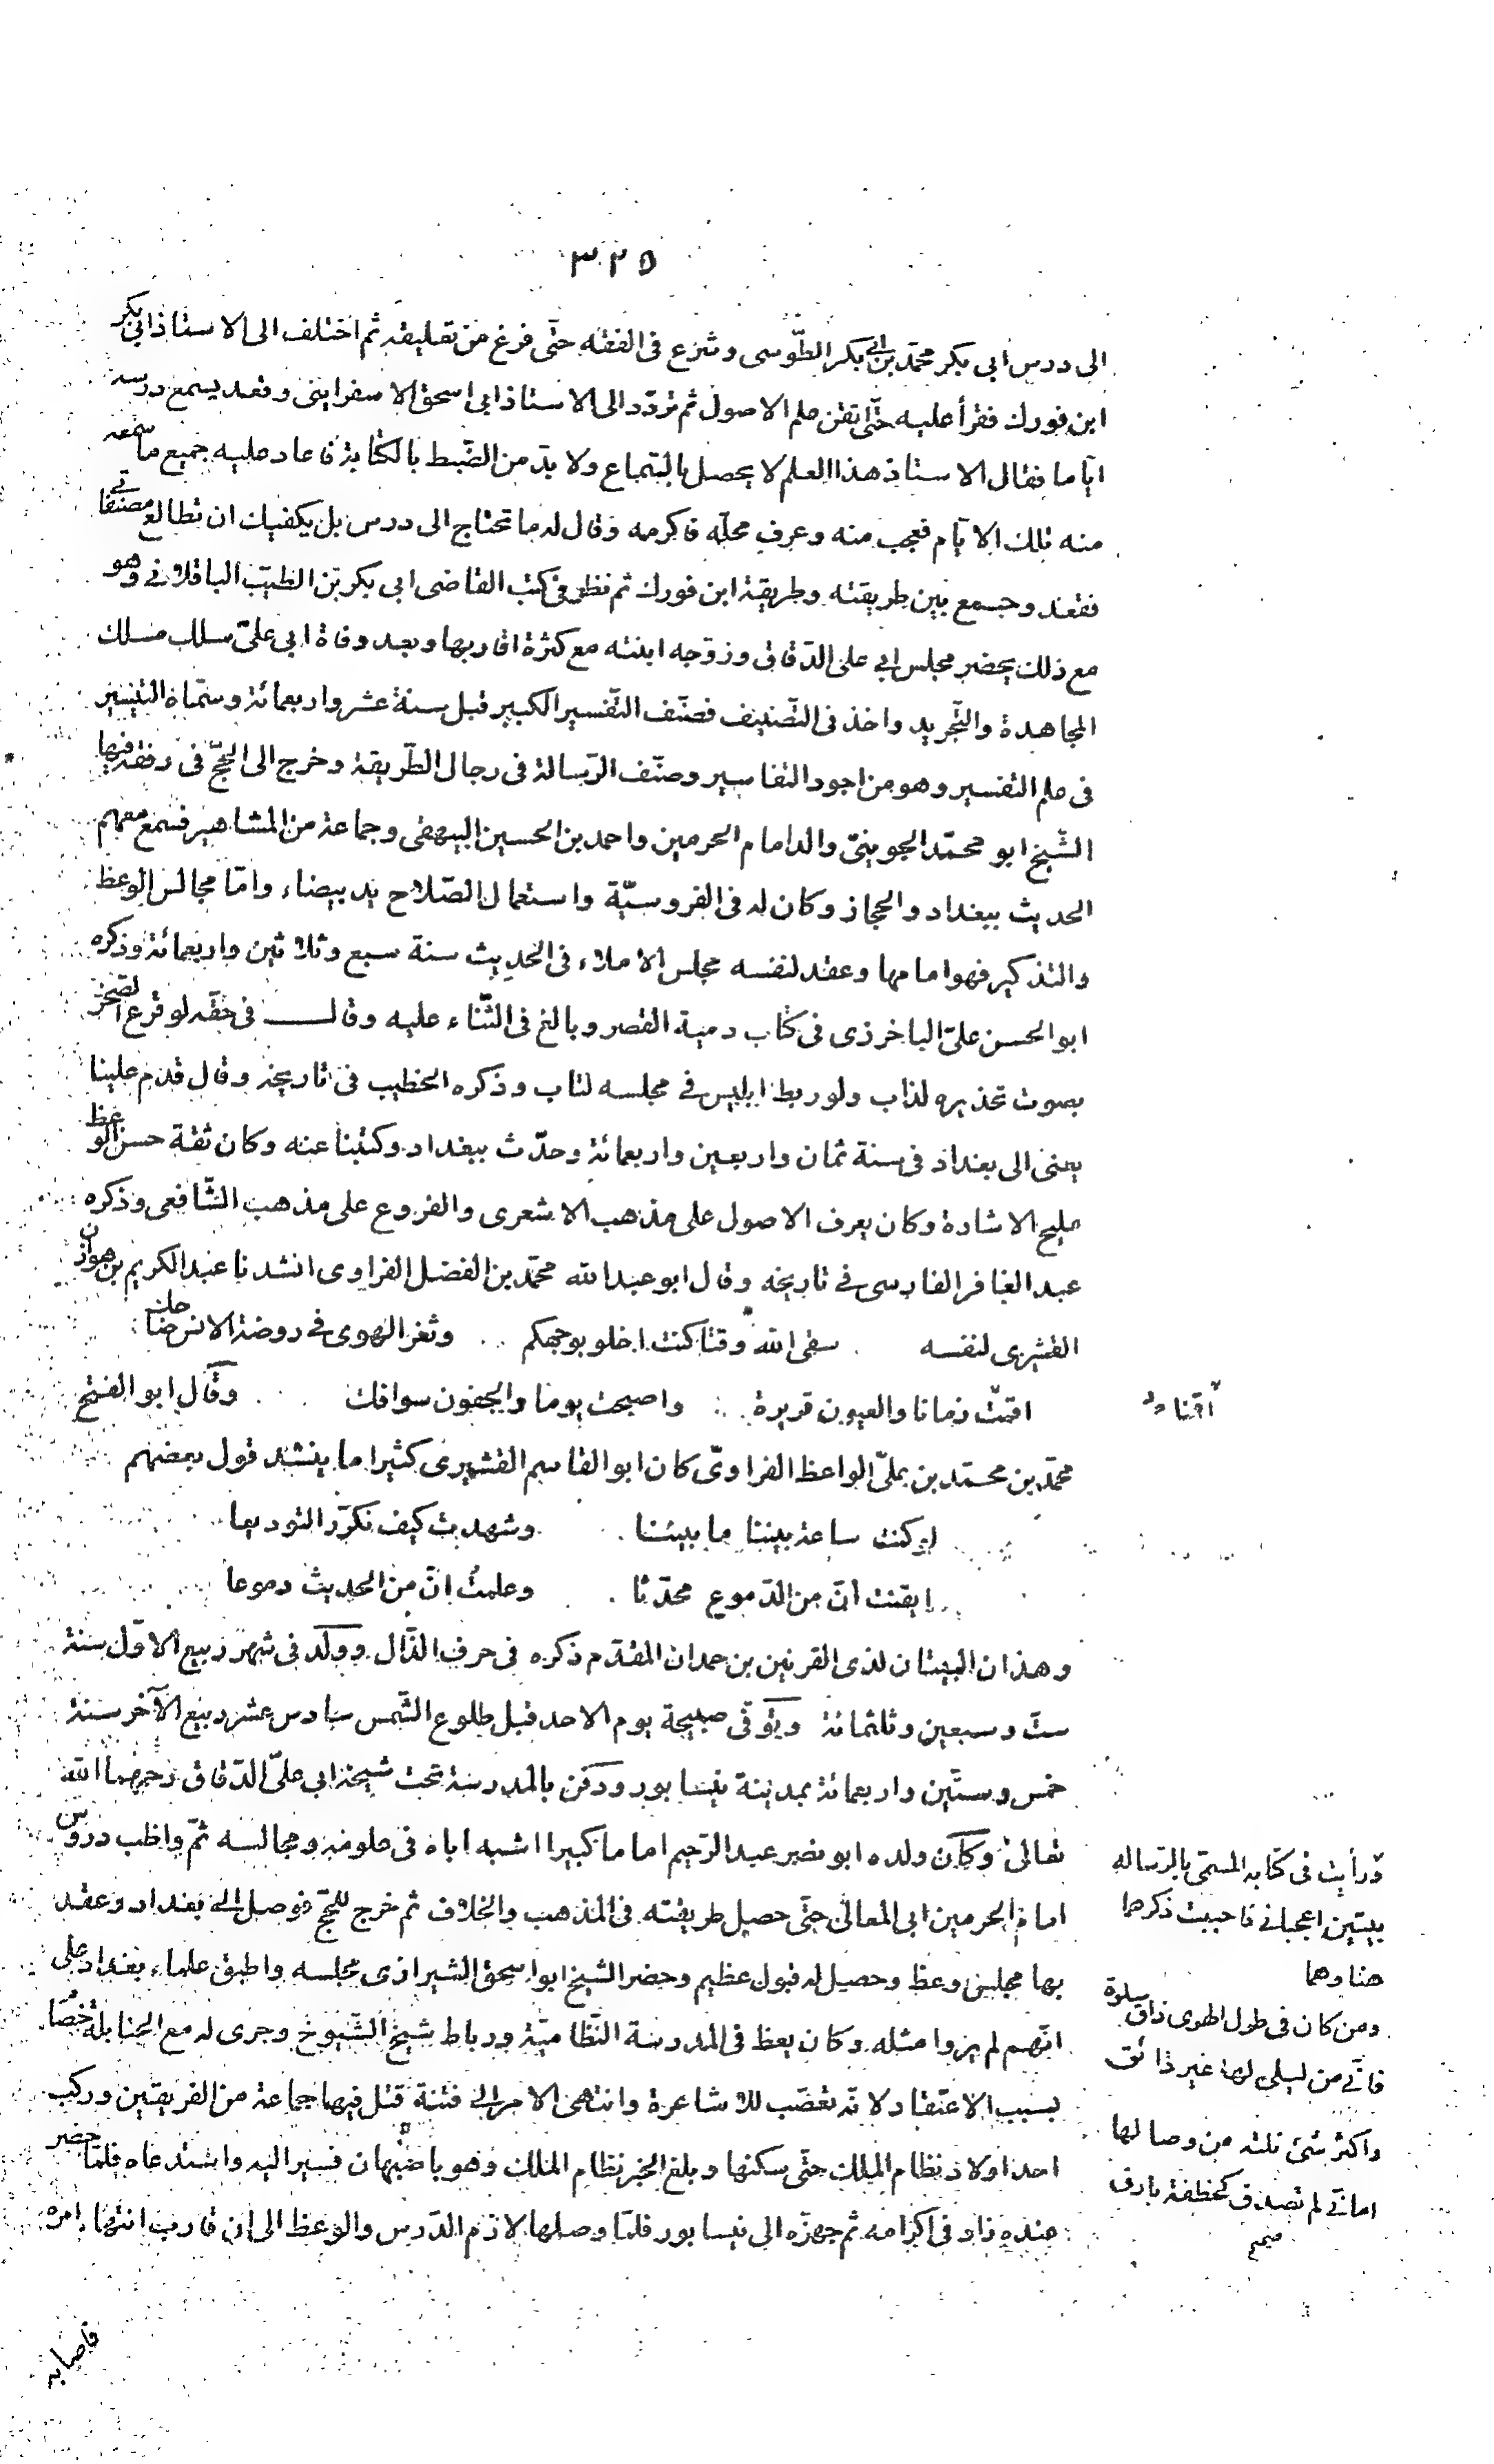 ٣٢٥
الى درس ابى بكر محمّد بن ابى بكر الطّوسى وشرع فى الفقه حتّى فرغ من تعليقه ثم اختلف الى الاستاذ ابى بكر
ابن فورك فقرأ عليه حتّى اتقن علم الاصول ثم تردّد الى الاستاذ ابى اسحق الاسفراينى وقعد يسمع درسه
ايّاما فقال الاستاذ هذا العلم لا يحصل بالسّماع ولا بدّ من الضّبط بالكتابة فاعاد عليه جميع ما سمعه
منه تلك الايّام فعجب منه وعرف محلّه فاكرمه وقال له ما تحتاج الى درس بل يكفيك ان تطالع مصنّفاتى
فقعد وجمع بين طريقته وطريقة ابن فورك ثم نظر فى كتب القاضى ابى بكر بن الطّيّب الباقلانى وهو
مع ذلك يحضر مجلس ابى على الدّقاق وزوّجه ابنته مع كثرة اقاربها وبعد وفاة ابى علىّ سلك مسلك
المجاهدة والتّجريد واخذ فى التّصنيف فصنّف التّفسير الكبير قبل سنة عشر واربعمائة وسمّاه التيسير
فى علم التفسير وهو من اجود التفاسير وصنّف الرّسالة فى رجال الطّريقة وخرج الى الحجّ فى رفقة فيها
الشّيخ ابو محمّد الجوينىّ والد امام الحرمين واحمد بن الحسين البيهقى وجماعة من المشاهير فسمع معهم
الحديث ببغداد والحجاز وكان له فى الفروسيّة واستعمال الصّلاح يد بيضاء وامّا مجالس الوعظ
والتذكير فهو امامها وعقد لنفسه مجلس الاملاء فى الحديث سنة سبع وثلاثين واربعمائة وذكره
ابو الحسن علىّ الباخرزى فى كتاب دمية القصر وبالغ فى الثّناء عليه وقال فى حقّه لو قرع الصّخر
بصوت تحذيره لذاب ولو ربط ابليس فى مجلسه لتاب وذكره الخطيب فى تاريخه وقال قدم علينا
يعنى الى بغداد فى سنة ثمان واربعين واربعمائة وحدّث ببغداد وكتبنا عنه وكان ثقة حسن الوعظ
مليح الاشارة وكان يعرف الاصول على مذهب الاشعرى والفروع على مذهب الشّافعى وذكره
عبد الغافر الفارسى فى تاريخه وقال ابو عبد الله محمّد بن الفضل الفراوى انشدنا عبد الكريم بن هوازن
القشيرى لنفسه سقى الله وقتا كنت اخلو بوجهكم وثغر الهوى فى روضة الانس ضاحك
اقمت زمانا والعيون قريرة واصبحت يوما والجفون سوافك وقال ابو الفتح
اقمنا
محمّد بن محمّد بن علىّ الواعظ الفراوىّ كان ابو القاسم القشيرى كثيرا ما ينشد قول بعضهم
لو كنت ساعة بيننا ما بيننا وشهدت كيف نكرّر التوديعا
ايقنت انّ من الدّموع محدّثا وعلمت انّ من الحديث دموعا
وهذان البيتان لذى القرنين بن حمدان المقدّم ذكره فى حرف الذّال وولد فى شهر ربيع الاوّل سنة
ستّ وسبعين وثلثمائة وتوفّى صبيحة يوم الاحد قبل طلوع الشّمس سادس عشر ربيع الآخر سنة
خمس وستّين واربعمائة بمدينة نيسابور ودفن بالمدرسة تحت شيخه ابى علىّ الدّقاق رحمهما الله
تعالى وكان ولده ابو نصر عبد الرّحيم اماما كبيرا اشبه اباه فى علومه ومجالسه ثمّ واظب دروس
امام الحرمين ابى المعالى حتّى حصّل طريقته فى المذهب والخلاف ثم خرج للحجّ فوصل الى بغداد وعقد
بها مجلس وعظ وحصل له قبول عظيم وحضر الشيخ ابو اسحق الشيرازى مجلسه واطبق علماء بغداد على
انّهم لم يروا مثله وكان يعظ فى المدرسة النّظاميّة ورباط شيخ الشّيوخ وجرى له مع الحنابلة خصام
بسبب الاعتقاد لانّه تعصّب للاشاعرة وانتهى الامر الى فتنة قتل فيها جماعة من الفريقين وركب
احد اولاد نظام الملك حتّى سكنها وبلغ الخبر نظام الملك وهو باصبهان فسيّر اليه واستدعاه فلمّا حضر
عنده زاد فى اكرامه ثم جهّزه الى نيسابور فلمّا وصلها لازم الدّرس والوعظ الى ان قارب انتهاء امره
ورأيت فى كتابه المسمّى بالرّساله
بيتين اعجبانى فاحببت ذكرهما
هنا وهما
ومن كان فى طول الهوى ذاق سلوة
فانّى من ليلى لها غير ذائق
واكثر شئ نلته من وصالها
امانى لم تصدق كخطفة بارق
فاصابه